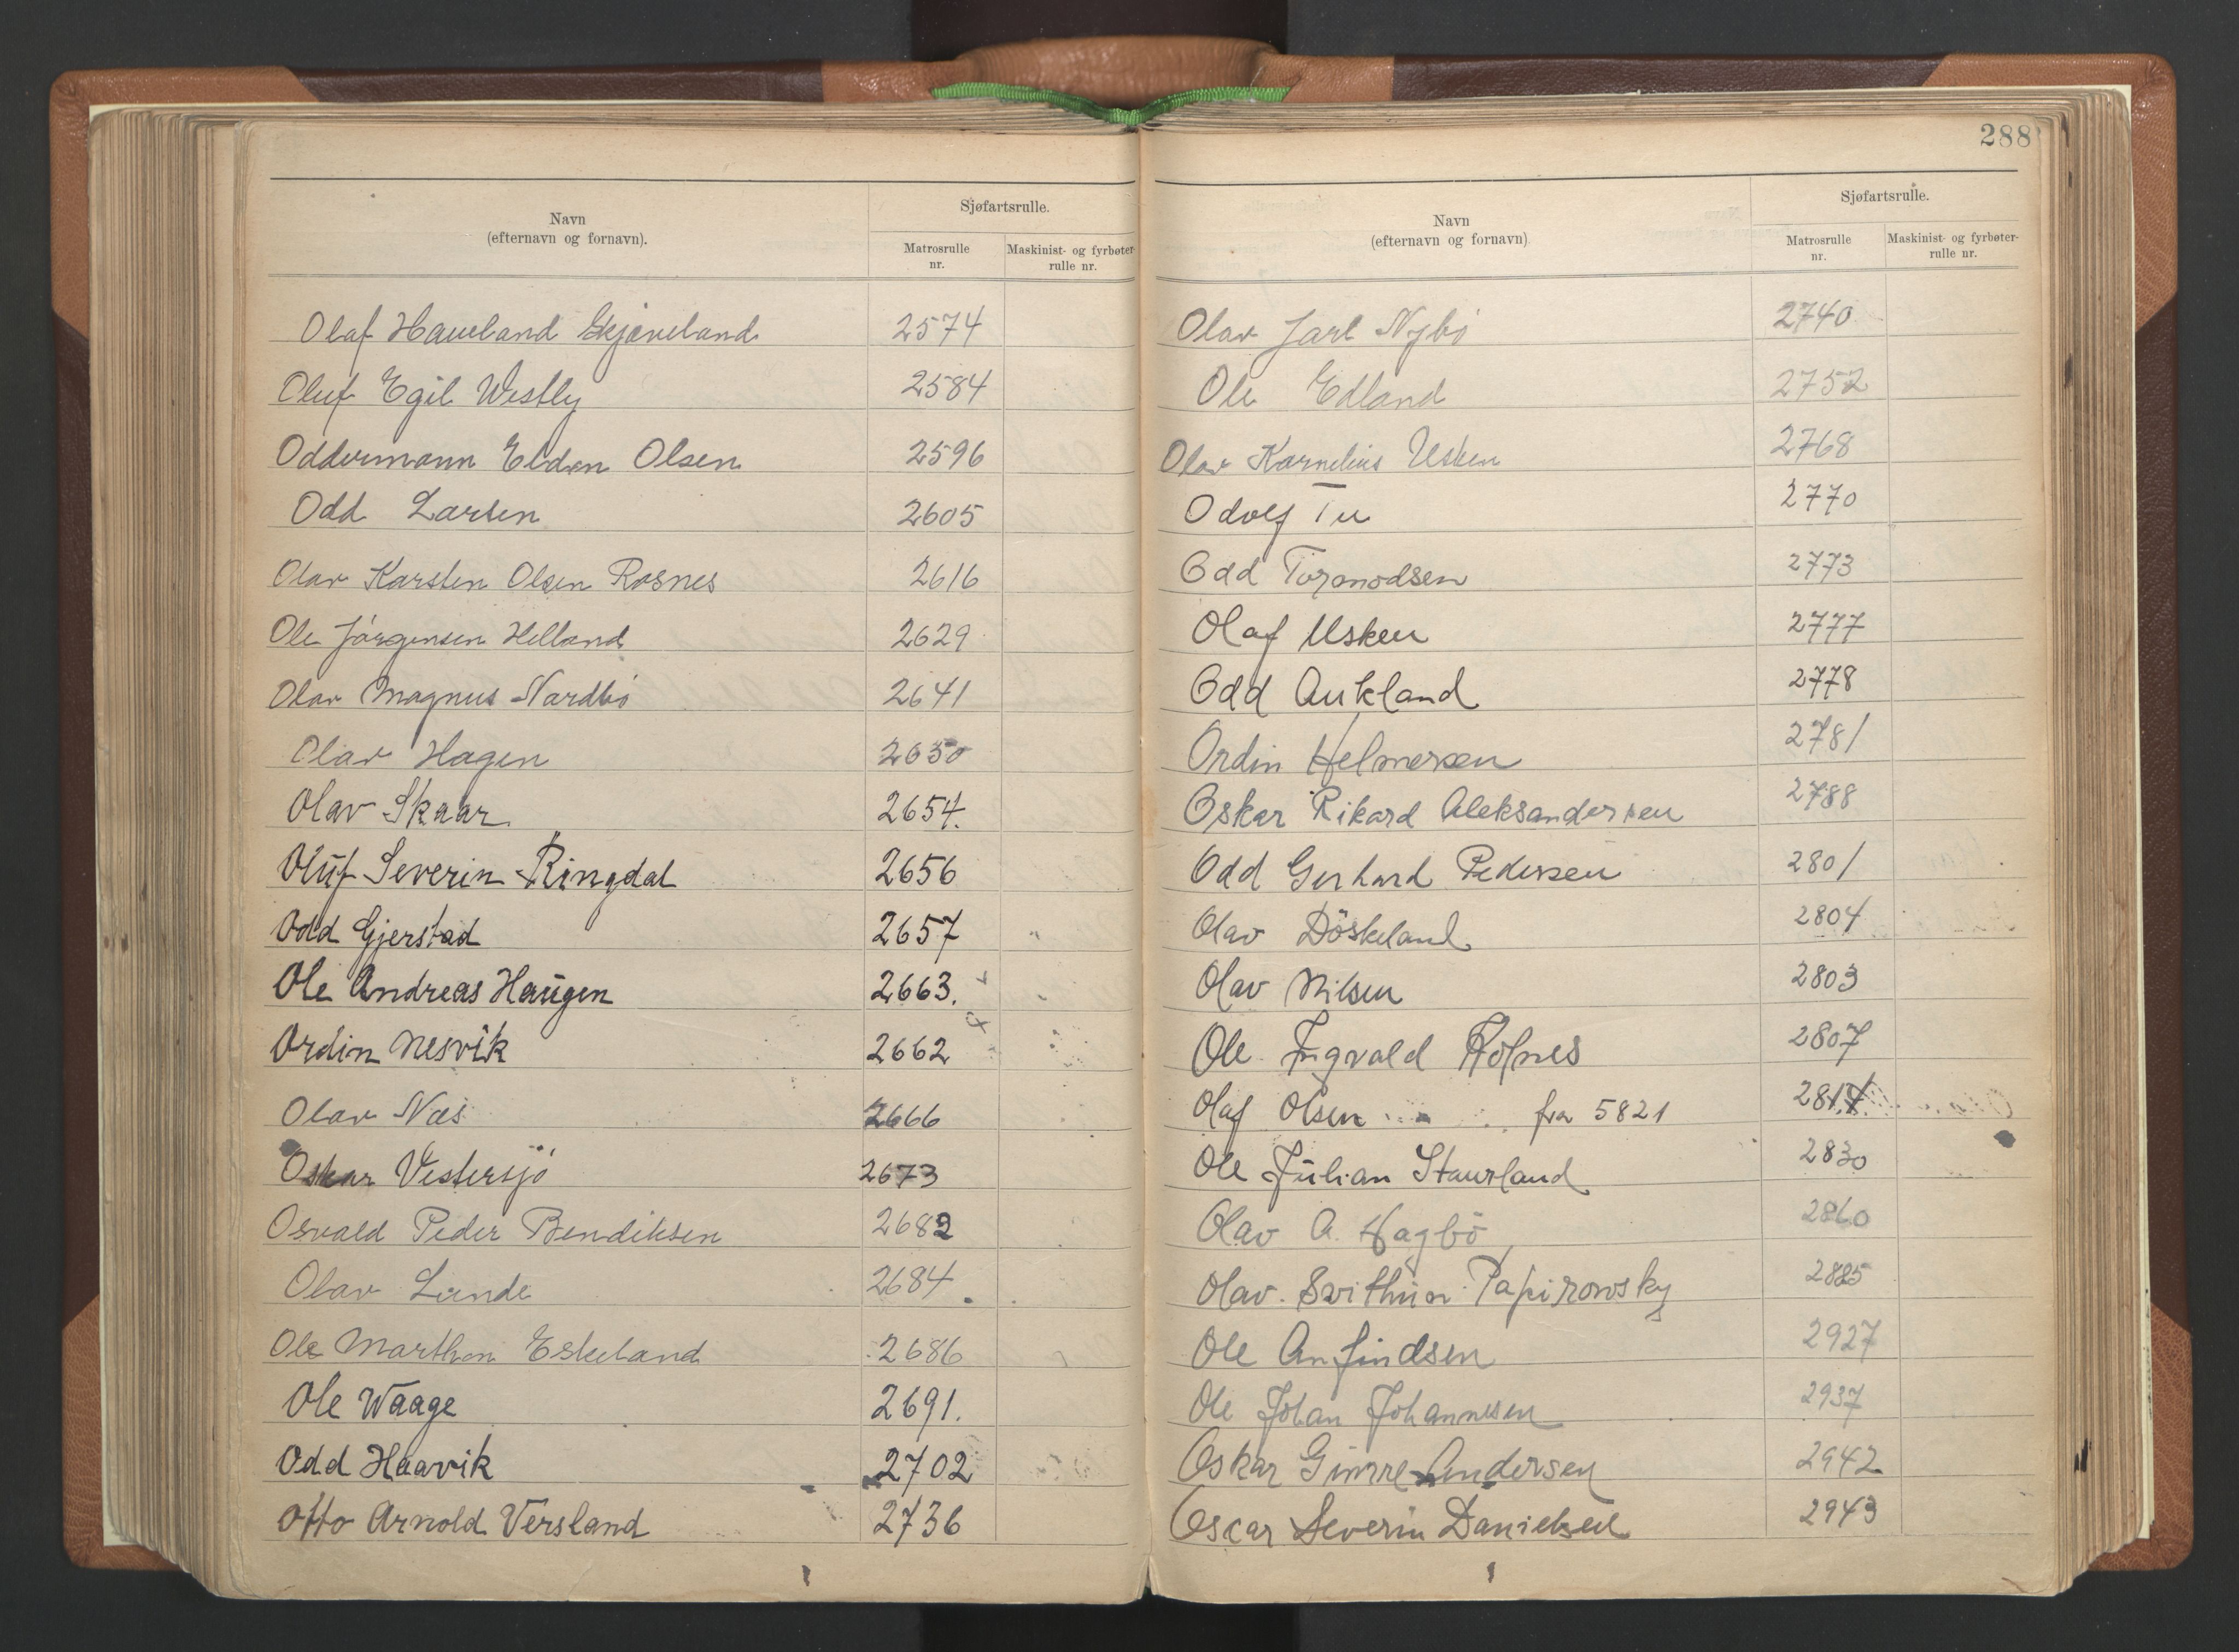 288
Navn
(efternavn og fornavn).
Sjøfartsrulle.
Matrosrulle nr.
Maskinist- og fyrbøter-rulle nr.
Olaf Haueland Gjøveland 2574
Oluf Egil Westly 2584
Oddermann Eldon Olsen 2596
Odd Larsen 2605
Olav Karsten Olsen Rosnes 2616
Ole Jörgensen Helland 2629
Olav Magnus Nordbö 2641
Olav Hagen 2650
Olav Skaar 2654.
Oluf Severin Ringdal 2656
Odd Gjerstad 2657
Ole Andreas Haugen 2663.
Ordin Nesvik 2662
Olav Næs 2666
Oskar Vestersjö 2673
Osvald Peder Bendiksen 2682
Olav Lunde 2684
Ole Marthon Eskeland 2686
Ole Waage 2691.
Odd Haavik 2702
Otto Arnold Versland 2736
Navn
(efternavn og fornavn)
Sjøfartsrulle.
Matrosrulle nr.
Maskinist- og fyrbøter-rulle nr.
Olav Jarl Nybö 2740
Ole Edland 2752
Olav Kornelius Usken 2768
Odolf Tu 2770
Odd Tormodsen 2773
Olaf Usken 2777
Odd Aukland 2778
Ordin Helmersen 2781
Oskar Rikard Aleksandersen 2788
Odd Gerhard Pedersen 2801
Olav Döskeland 2804
Olav Nilsen 2803
Ole Ingvald Hofnes 2807
Olaf Olsen fra 5821 2814
Ole Julian Staurland 2830
Olav A. Hagbö 2860
Olav Svithun Papirowsky 2885
Ole Anfindsen 2927
Ole Johan Johannesen 2937
Oskar Gimre Andersen 2942
Oscar Severin Danielsen 2943